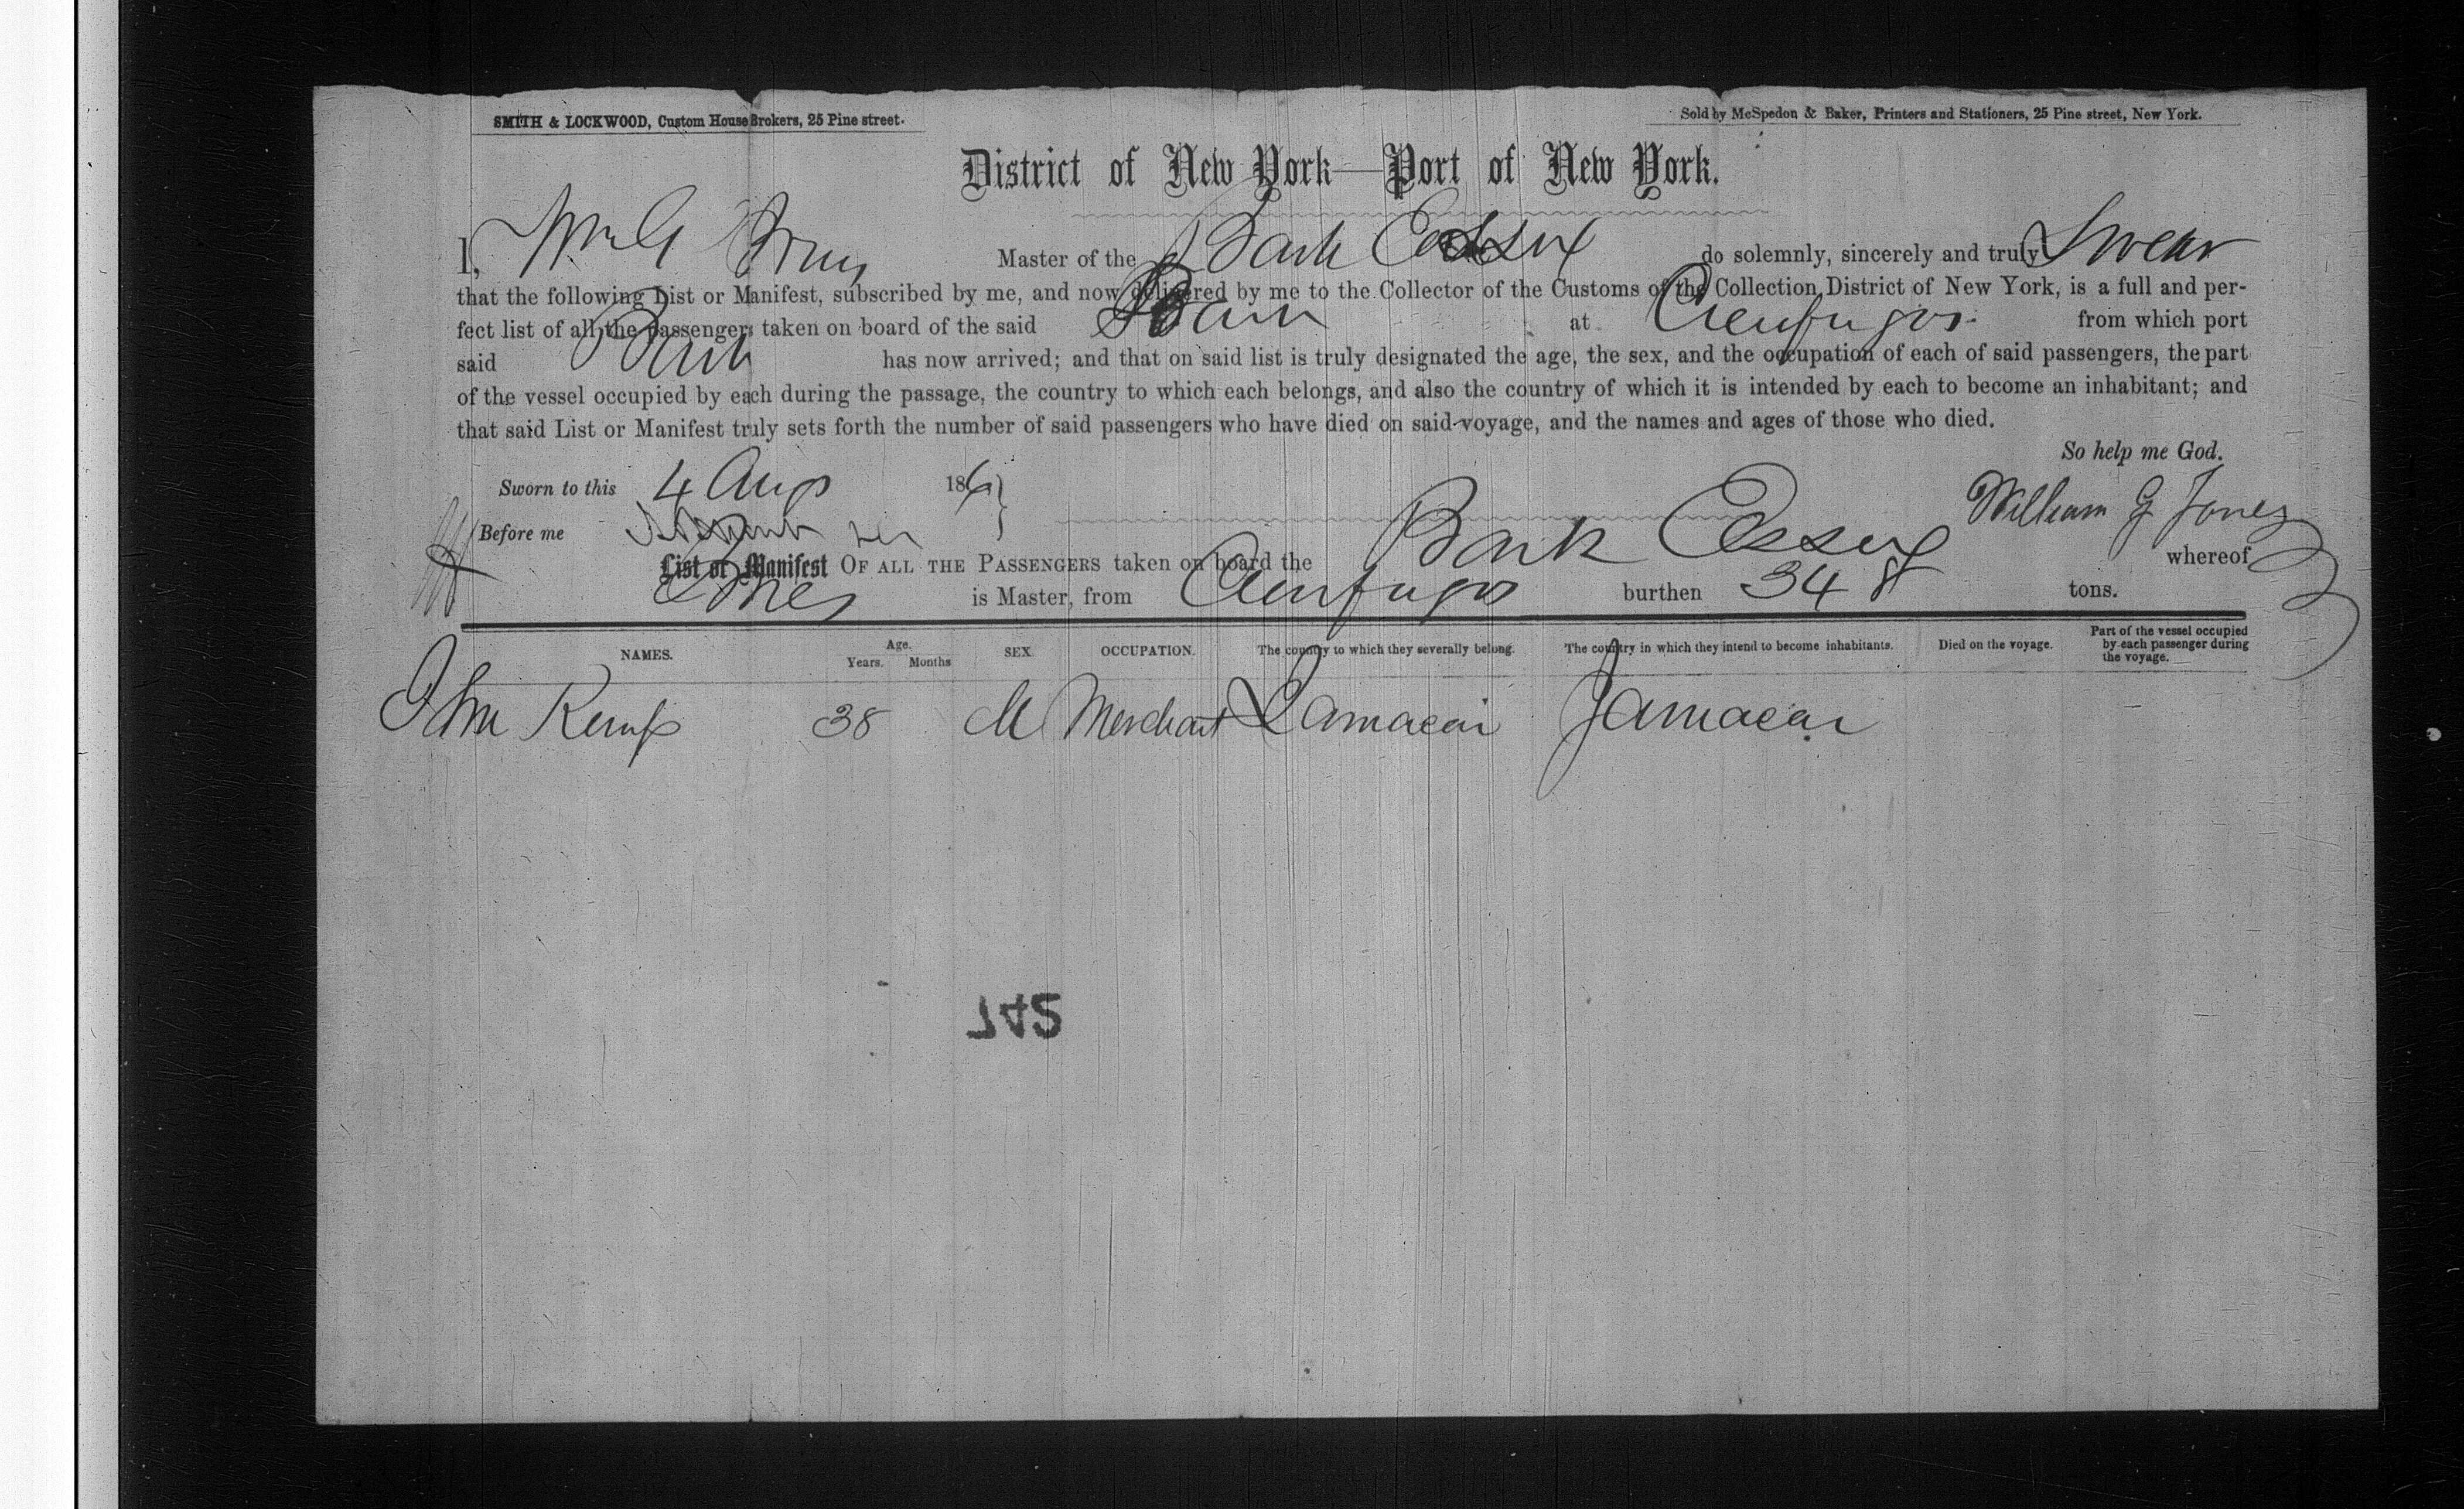 SMITH & LOCKWOOD, Custom House Brokers, 25 Pine street.
Sold by McSpedon & Baker, Printers and Stationers, 25 Pine street, New York.
District of New York—Port of New York.
I, Wm G Jones Master of the Bark Essex do solemnly, sincerely and truly Swear
that the following List or Manifest, subscribed by me, and now delivered by me to the Collector of the Customs of the Collection District of New York, is a full and per-
fect list of all the passengers taken on board of the said Bark at Cienfuegos from which port
said Bark has now arrived; and that on said list is truly designated the age, the sex, and the occupation of each of said passengers, the part
of the vessel occupied by each during the passage, the country to which each belongs, and also the country of which it is intended by each to become an inhabitant; and
that said List or Manifest truly sets forth the number of said passengers who have died on said voyage, and the names and ages of those who died.
So help me God.
Sworn to this 4 Aug 186
William G Jones
Before me
List or Manifest OF ALL THE PASSENGERS taken on board the Bark Essex whereof
Jones is Master, from Cienfugos burthen 348 tons.
NAMES. Age. Years. Months SEX. OCCUPATION. The country to which they severally belong. The country in which they intend to become inhabitants. Died on the voyage. Part of the vessel occupied by each passenger during the voyage.
John Kemp 38 M Merchant Jamacai Jamacai
742